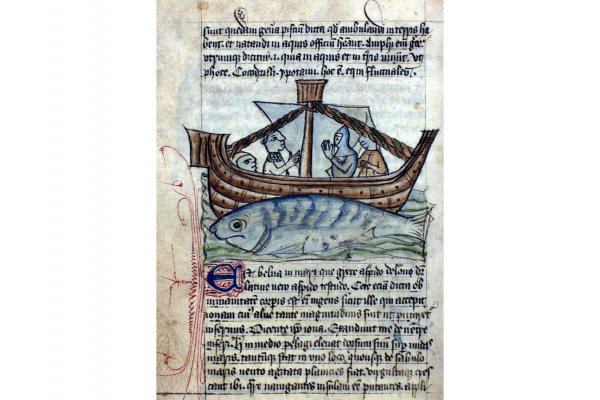 sunt quedam gen̄a pisciū dicta qđ ambulandi in terris ha
bent. et natandi in aquis officiū hēant. Amphi em̄ gce
vtrumque dicitur .i. quia in aquis et in t̄ris uiuūt. vt
phoce. Cocodrilli. ypotami. hoc ē. equi fluctuales.
Est belua in mari que grece aspido delone dr̄
latine vero aspido testudo. Cete eciā dicta ob
inmanitatem corpis est em̄ ingens sicut ille qui accepit
ionam cui9 alue tante magnitudinis fuit vt putaret
infernus. Dicente ip̄o iona. Exaudiuit me de ventre
inferi. in medio pelagi eleuat dorsum suū sup̄ vndas
maris. tantūque stat in vno loco. quousque de sabulo
maris vento agitata planicies fiat. virgultaque cres
cant ibi. Qr̄e nauigantes insulam eē putantes. appli